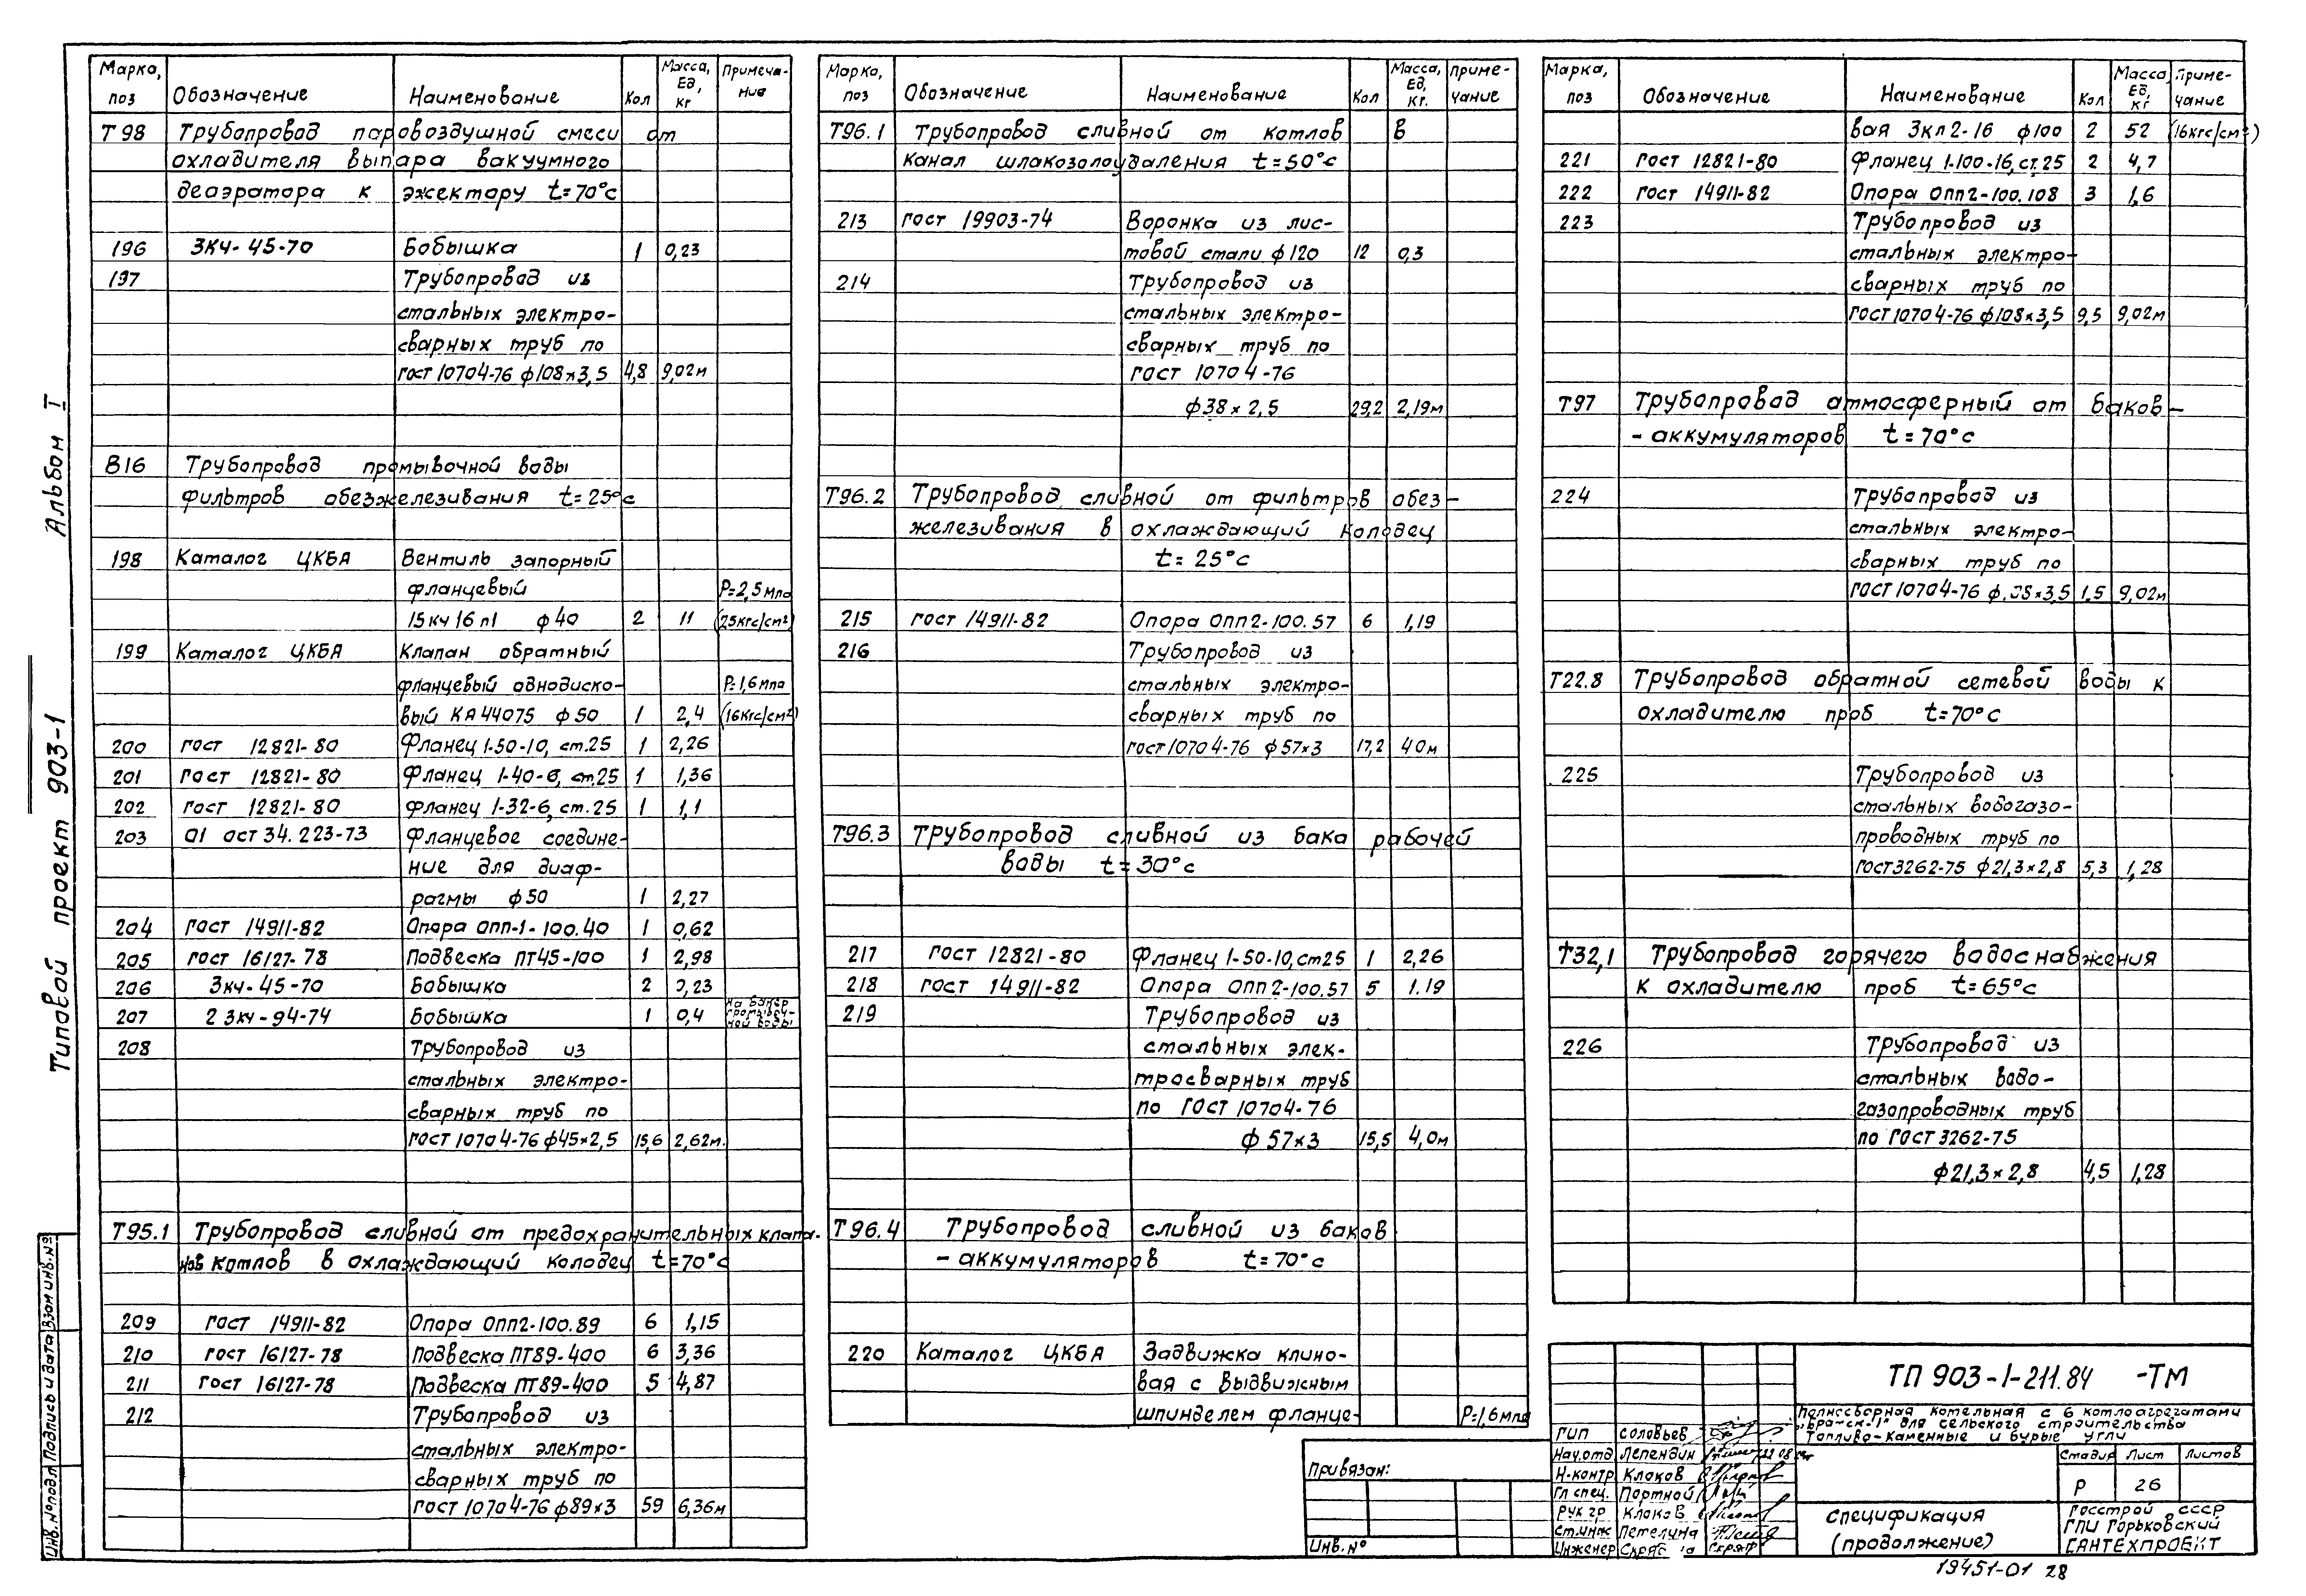 Альбом I
Типовой проект 903-1
Марка, поз Обозначение Наименование Кол Масса, Ед, кг Примеча-ние
Т98 Трубопровод паровоздушной смеси от
охладителя выпара вакуумного
деаэратора к эжектору t=70°с
196 ЗКЧ-45-70 Бобышка 1 0,23
197 Трубопровод из
стальных электро-
сварных труб по
гост 10704-76 ф108×3,5 4,8 9,02м
В16 Трубопровод промывочной воды
фильтров обезжелезивания t=25°с
198 Каталог ЦКБА Вентиль запорный
фланцевый Р=2,5мпа
15кч16п1 ф40 2 11 (25кгс/см²)
199 Каталог ЦКБА Клапан обратный
фланцевый однодиско- Р=1,6мпа
вый КА44075 ф50 1 2,4 (16кгс/см²)
200 гост 12821-80 Фланец 1-50-10, ст.25 1 2,26
201 гост 12821-80 Фланец 1-40-6, ст,25 1 1,36
202 гост 12821-80 Фланец 1-32-6, ст.25 1 1,1
203 01 ост 34.223-73 Фланцевое соедине-
ние для диаф-
рагмы ф50 1 2,27
204 гост 14911-82 Опора опп-1-100.40 1 0,62
205 гост 16127-78 Подвеска ПТ45-100 1 2,98
206 Зкч-45-70 Бобышка 2 0,23
207 2 Зкч-94-74 Бобышка 1 0,4 на бакер промывоч-ной воды
208 Трубопровод из
стальных электро-
сварных труб по
гост 10704-76 ф45×2,5 15,6 2,62м.
Т95.1 Трубопровод сливной от предохранительных клапа-
нов котлов в охлаждающий колодец t=70°с
209 гост 14911-82 Опора Опп2-100.89 6 1,15
210 гост 16127-78 Подвеска ПТ89-400 6 3,36
211 гост 16127-78 Подвеска ПТ89-400 5 4,87
212 Трубопровод из
стальных электро-
сварных труб по
гост 10704-76 ф89×3 59 6,36м
Марка, поз Обозначение Наименование Кол Масса, Ед, кг. Приме-чание
Т96.1 Трубопровод сливной от котлов в
канал шлакозолоудаления t=50°с
213 гост 19903-74 Воронка из лис-
товой стали ф120 12 0,3
214 Трубопровод из
стальных электро-
сварных труб по
гост 10704-76
ф38×2,5 29,2 2,19м
Т96.2 Трубопровод сливной от фильтров обез-
железивания в охлаждающий колодец
t=25°с
215 гост 14911-82 Опора Опп2-100.57 6 1,19
216 Трубопровод из
стальных электро-
сварных труб по
гост 10704-76 ф57×3 17,2 4,0м
Т96.3 Трубопровод сливной из бака рабочей
воды t=30°с
217 гост 12821-80 Фланец 1-50-10, ст25 1 2,26
218 гост 14911-82 Опора Опп2-100.57 5 1.19
219 Трубопровод из
стальных элек-
тросварных труб
по гост 10704-76
ф57×3 15,5 4,0м
Т96.4 Трубопровод сливной из баков
-аккумуляторов t=70°с
220 Каталог ЦКБА Задвижка клино-
вая с выдвижным
шпинделем фланце- Р=1,6мпа
Марка, поз Обозначение Наименование Кол Масса Ед, кг Приме-чание
вая Зкл2-16 ф100 2 52 (16кгс/см²)
221 гост 12821-80 Фланец 1-100-16, ст.25 2 4,7
222 гост 14911-82 Опора Опп2-100.108 3 1,6
223 Трубопровод из
стальных электро-
сварных труб по
гост 10704-76 ф108×3,5 9,5 9,02м
Т97 Трубопровод атмосферный от баков-
-аккумуляторов t=70°с
224 Трубопровод из
стальных электро-
сварных труб по
гост 10704-76 ф108×3,5 1,5 9,02м
Т22.8 Трубопровод обратной сетевой воды к
охладителю проб t=70°с
225 Трубопровод из
стальных водогазо-
проводных труб по
гост3262-75 ф21,3×2,8 5,3 1,28
Т32,1 Трубопровод горячего водоснабжения
к охладителю проб t=65°с
226 Трубопровод из
стальных водо-
газопроводных труб
по гост 3262-75
ф21,3×2,8 4,5 1,28
Взам инв.№
Подпись и дата
Инв.№подл
Привязан:
Инв.№
ТП 903-1-211.84 -ТМ
Полносборная котельная с 6 котлоагрегатами
„Братск-1" для сельского строительства
Топливо-каменные и бурые угли
ГИП Соловьев
Нач.отд Лепендин
Н.контр Клоков
Гл спец. Портной
Рук гр Клоков
Ст.инж Петелина
Инженер
Стадия Лист Листов
Р 26
Спецификация
(продолжение)
Госстрой СССР
ГПИ Горьковский
САНТЕХПРОЕКТ
19451-01 28